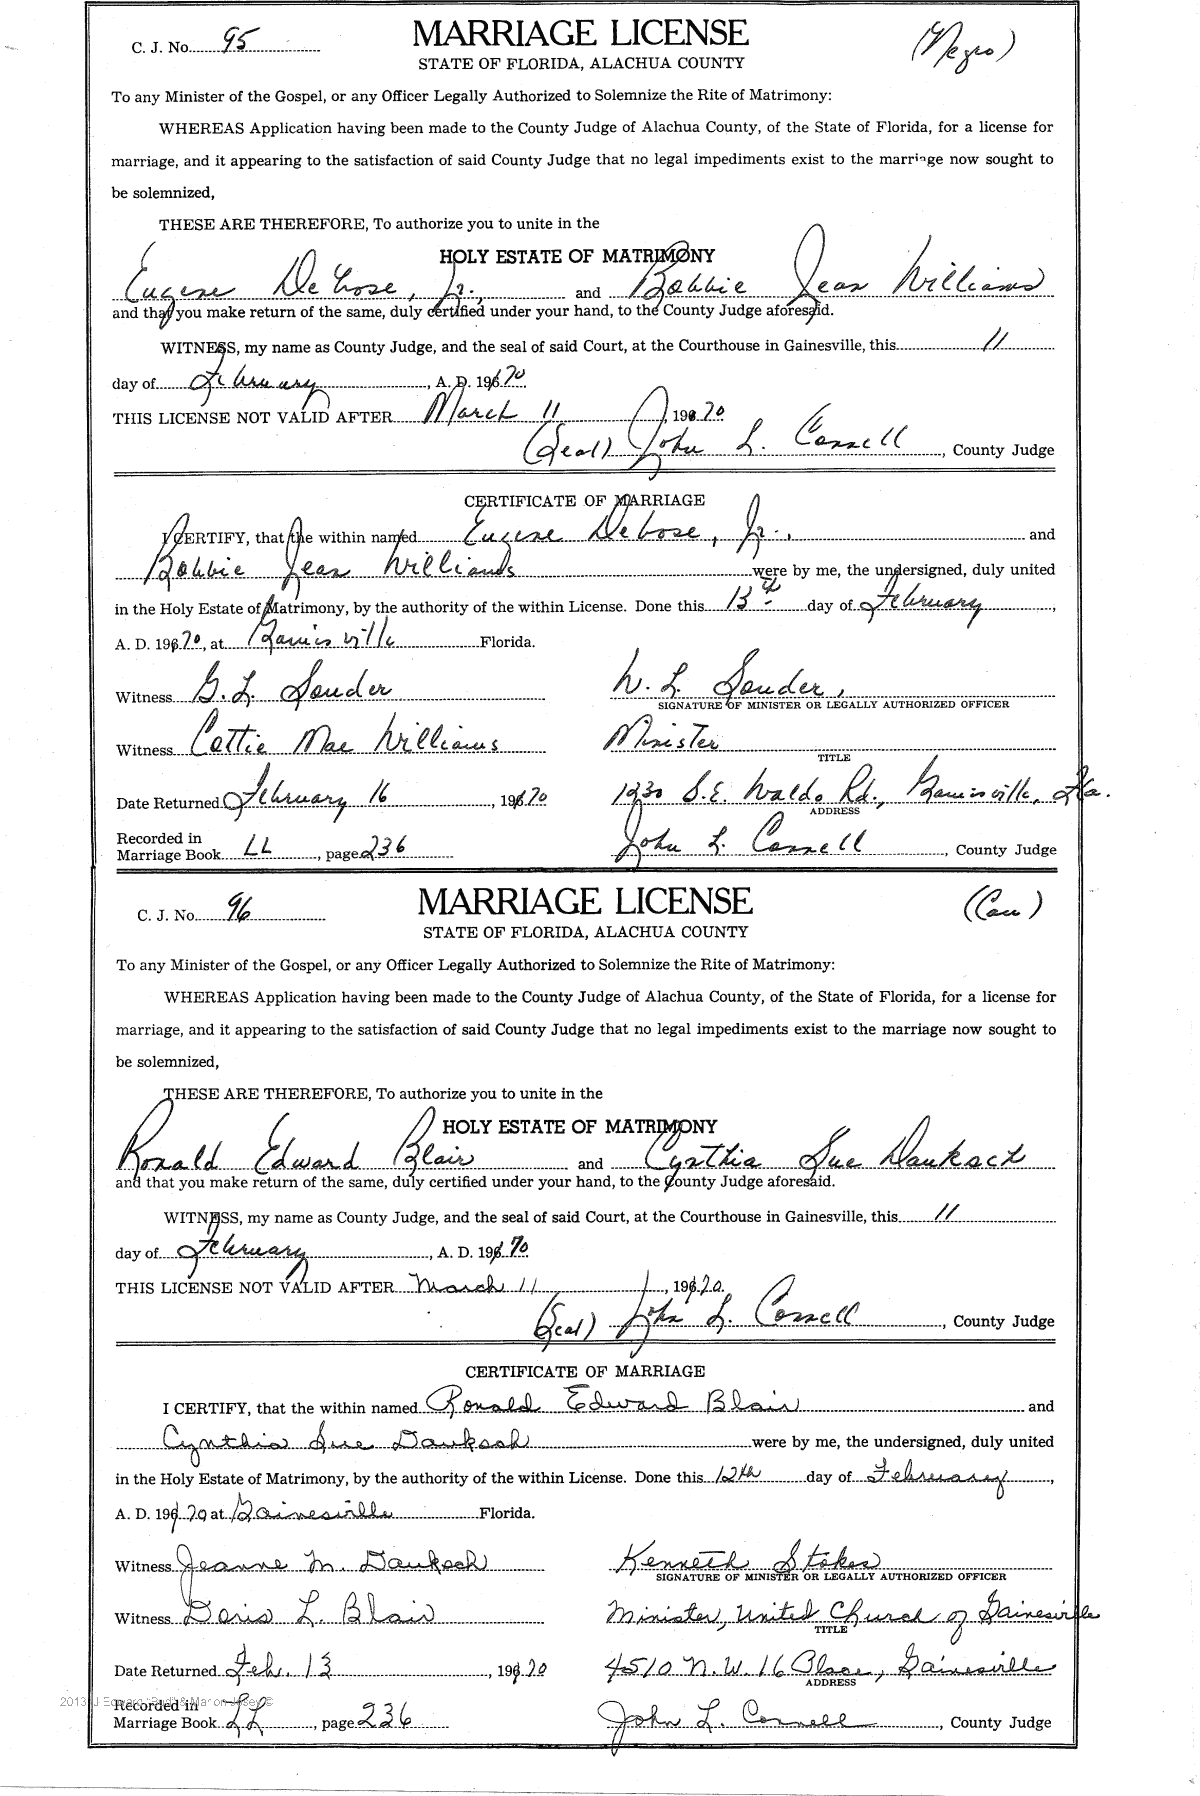 C. J. No. 95 MARRIAGE LICENSE (Negro)
STATE OF FLORIDA, ALACHUA COUNTY
To any Minister of the Gospel, or any Officer Legally Authorized to Solemnize the Rite of Matrimony:
WHEREAS Application having been made to the County Judge of Alachua County, of the State of Florida, for a license for
marriage, and it appearing to the satisfaction of said County Judge that no legal impediments exist to the marriage now sought to
be solemnized,
THESE ARE THEREFORE, To authorize you to unite in the
HOLY ESTATE OF MATRIMONY
Eugene DeBose, Jr., and Bobbie Jean Williams
and that you make return of the same, duly certified under your hand, to the County Judge aforesaid.
WITNESS, my name as County Judge, and the seal of said Court, at the Courthouse in Gainesville, this 11
day of February, A. D. 1970
THIS LICENSE NOT VALID AFTER March 11, 1970
(Seal) John L. Connell, County Judge
CERTIFICATE OF MARRIAGE
I CERTIFY, that the within named Eugene DeBose, Jr., and
Bobbie Jean Williams were by me, the undersigned, duly united
in the Holy Estate of Matrimony, by the authority of the within License. Done this 13th day of February,
A. D. 1970, at Gainesville Florida.
Witness G. L. Souder W. L. Souder,
SIGNATURE OF MINISTER OR LEGALLY AUTHORIZED OFFICER
Witness Cottie Mae Williams Minister
TITLE
Date Returned February 16, 1970 1230 S.E. Waldo Rd., Gainesville, Fla.
ADDRESS
Recorded in
Marriage Book LL, page 236 John L. Connell, County Judge
C. J. No. 96 MARRIAGE LICENSE (Cau)
STATE OF FLORIDA, ALACHUA COUNTY
To any Minister of the Gospel, or any Officer Legally Authorized to Solemnize the Rite of Matrimony:
WHEREAS Application having been made to the County Judge of Alachua County, of the State of Florida, for a license for
marriage, and it appearing to the satisfaction of said County Judge that no legal impediments exist to the marriage now sought to
be solemnized,
THESE ARE THEREFORE, To authorize you to unite in the
HOLY ESTATE OF MATRIMONY
Ronald Edward Blair and Cynthia Sue Dauksch
and that you make return of the same, duly certified under your hand, to the County Judge aforesaid.
WITNESS, my name as County Judge, and the seal of said Court, at the Courthouse in Gainesville, this 11
day of February, A. D. 1970
THIS LICENSE NOT VALID AFTER March 11, 1970.
(Seal) John L. Connell, County Judge
CERTIFICATE OF MARRIAGE
I CERTIFY, that the within named Ronald Edward Blair and
Cynthia Sue Dauksch were by me, the undersigned, duly united
in the Holy Estate of Matrimony, by the authority of the within License. Done this 12th day of February,
A. D. 1970 at Gainesville Florida.
Witness Jeanne M. Dauksch Kenneth Stokes
SIGNATURE OF MINISTER OR LEGALLY AUTHORIZED OFFICER
Witness Doris L. Blair Minister, United Church of Gainesville
TITLE
Date Returned Feb. 13, 1970 4510 N.W. 16 Place, Gainesville
ADDRESS
2013 J Edward "Bud" & Marion Josey ©
Recorded in
Marriage Book LL, page 236 John L. Connell, County Judge